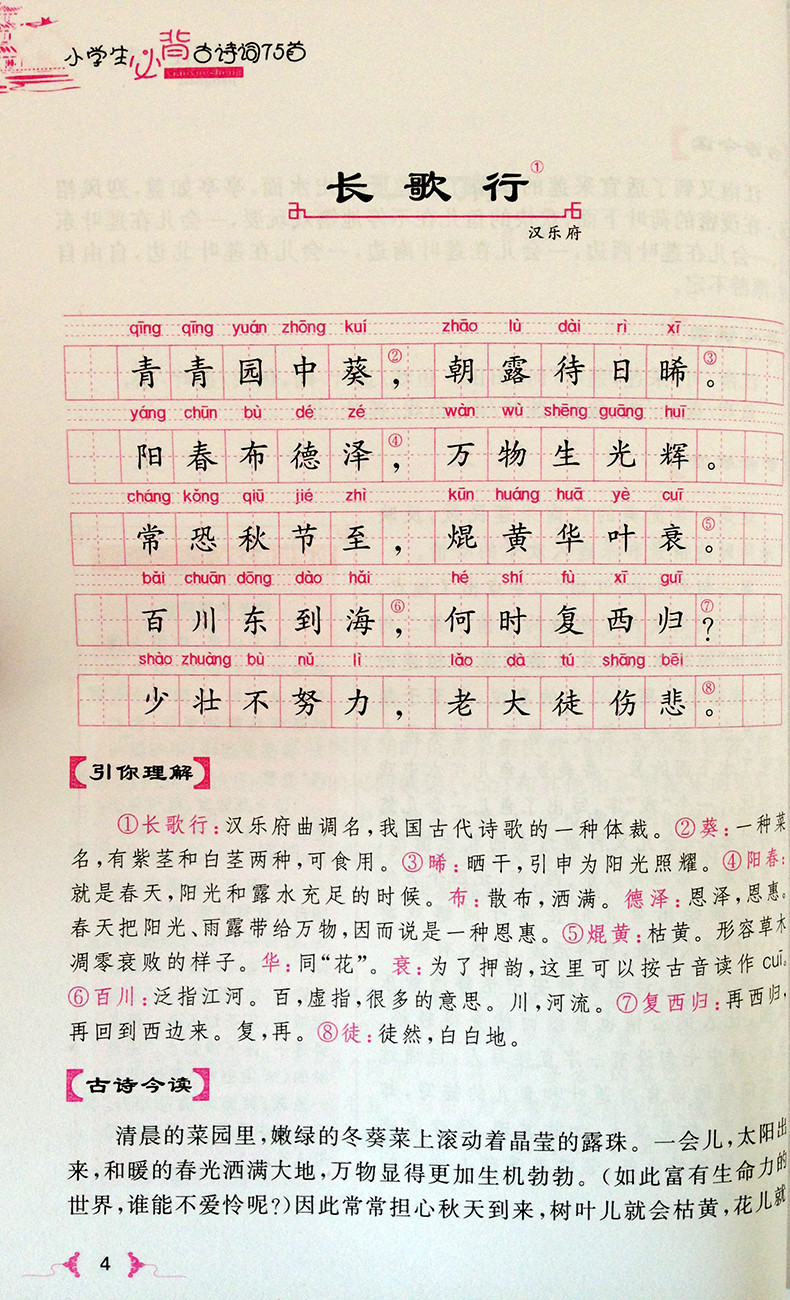 小学生必背古诗词75首
长歌行①
汉乐府
qīng qīng yuán zhōng kuí zhāo lù dài rì xī
青青园中葵②，朝露待日晞③。
yáng chūn bù dé zé wàn wù shēng guāng huī
阳春布德泽④，万物生光辉。
cháng kǒng qiū jié zhì kūn huáng huā yè cuī
常恐秋节至，焜黄华叶衰⑤。
bǎi chuān dōng dào hǎi hé shí fù xī guī
百川东到海⑥，何时复西归⑦？
shào zhuàng bù nǔ lì lǎo dà tú shāng bēi
少壮不努力，老大徒伤悲⑧。
【引你理解】
①长歌行：汉乐府曲调名，我国古代诗歌的一种体裁。②葵：一种菜
名，有紫茎和白茎两种，可食用。③晞：晒干，引申为阳光照耀。④阳春：
就是春天，阳光和露水充足的时候。布：散布，洒满。德泽：恩泽，恩惠。
春天把阳光、雨露带给万物，因而说是一种恩惠。⑤焜黄：枯黄。形容草木
凋零衰败的样子。华：同“花”。衰：为了押韵，这里可以按古音读作 cuī。
⑥百川：泛指江河。百，虚指，很多的意思。川，河流。⑦复西归：再西归，
再回到西边来。复，再。⑧徒：徒然，白白地。
【古诗今读】
清晨的菜园里，嫩绿的冬葵菜上滚动着晶莹的露珠。一会儿，太阳出
来，和暖的春光洒满大地，万物显得更加生机勃勃。（如此富有生命力的
世界，谁能不爱怜呢？）因此常常担心秋天到来，树叶儿就会枯黄，花儿就
4